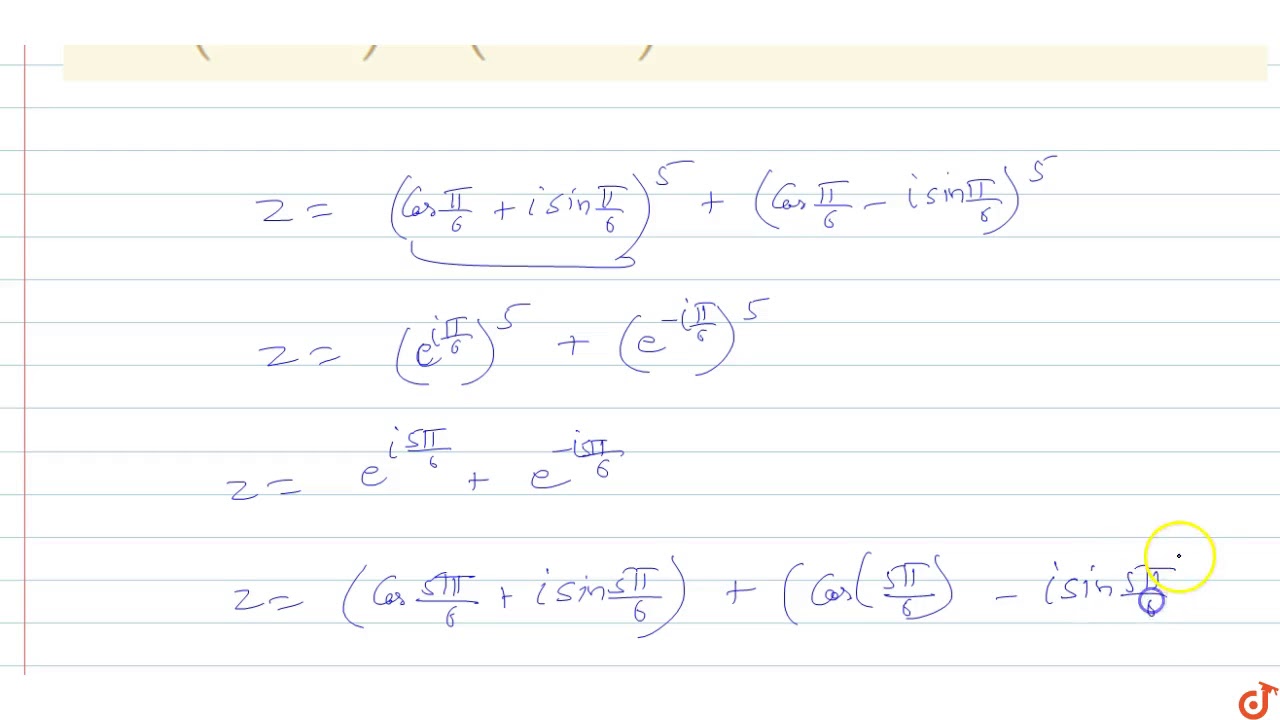 z = (Cos π/6 + i sin π/6)^5 + (Cos π/6 - i sin π/6)^5
z = (e^(iπ/6))^5 + (e^(-iπ/6))^5
z = e^(i5π/6) + e^(-i5π/6)
z = (Cos 5π/6 + i sin 5π/6) + (Cos(5π/6) - i sin 5π/6